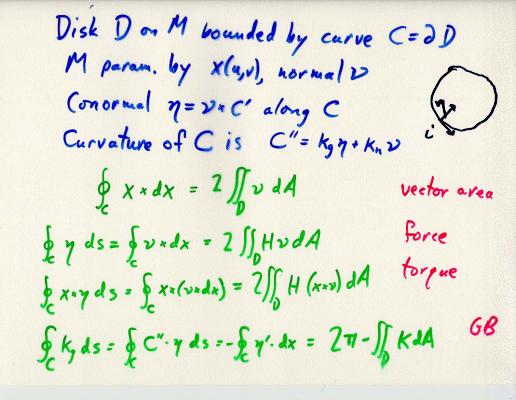 Disk D on M bounded by curve C=∂D
M param. by x(u,v), normal ν
Conormal η=ν×C' along C
Curvature of C is C''= k_g η + k_n ν
∮_C x×dx = 2∬_D ν dA vector area
∮_C η ds = ∮_C ν×dx = 2∬_D Hν dA force
∮_C x×η ds = ∮_C x×(ν×dx) = 2∬_D H (x×ν) dA torque
∮_C k_g ds = ∮_C C''·η ds = -∮_C η'·dx = 2π-∬_D K dA GB